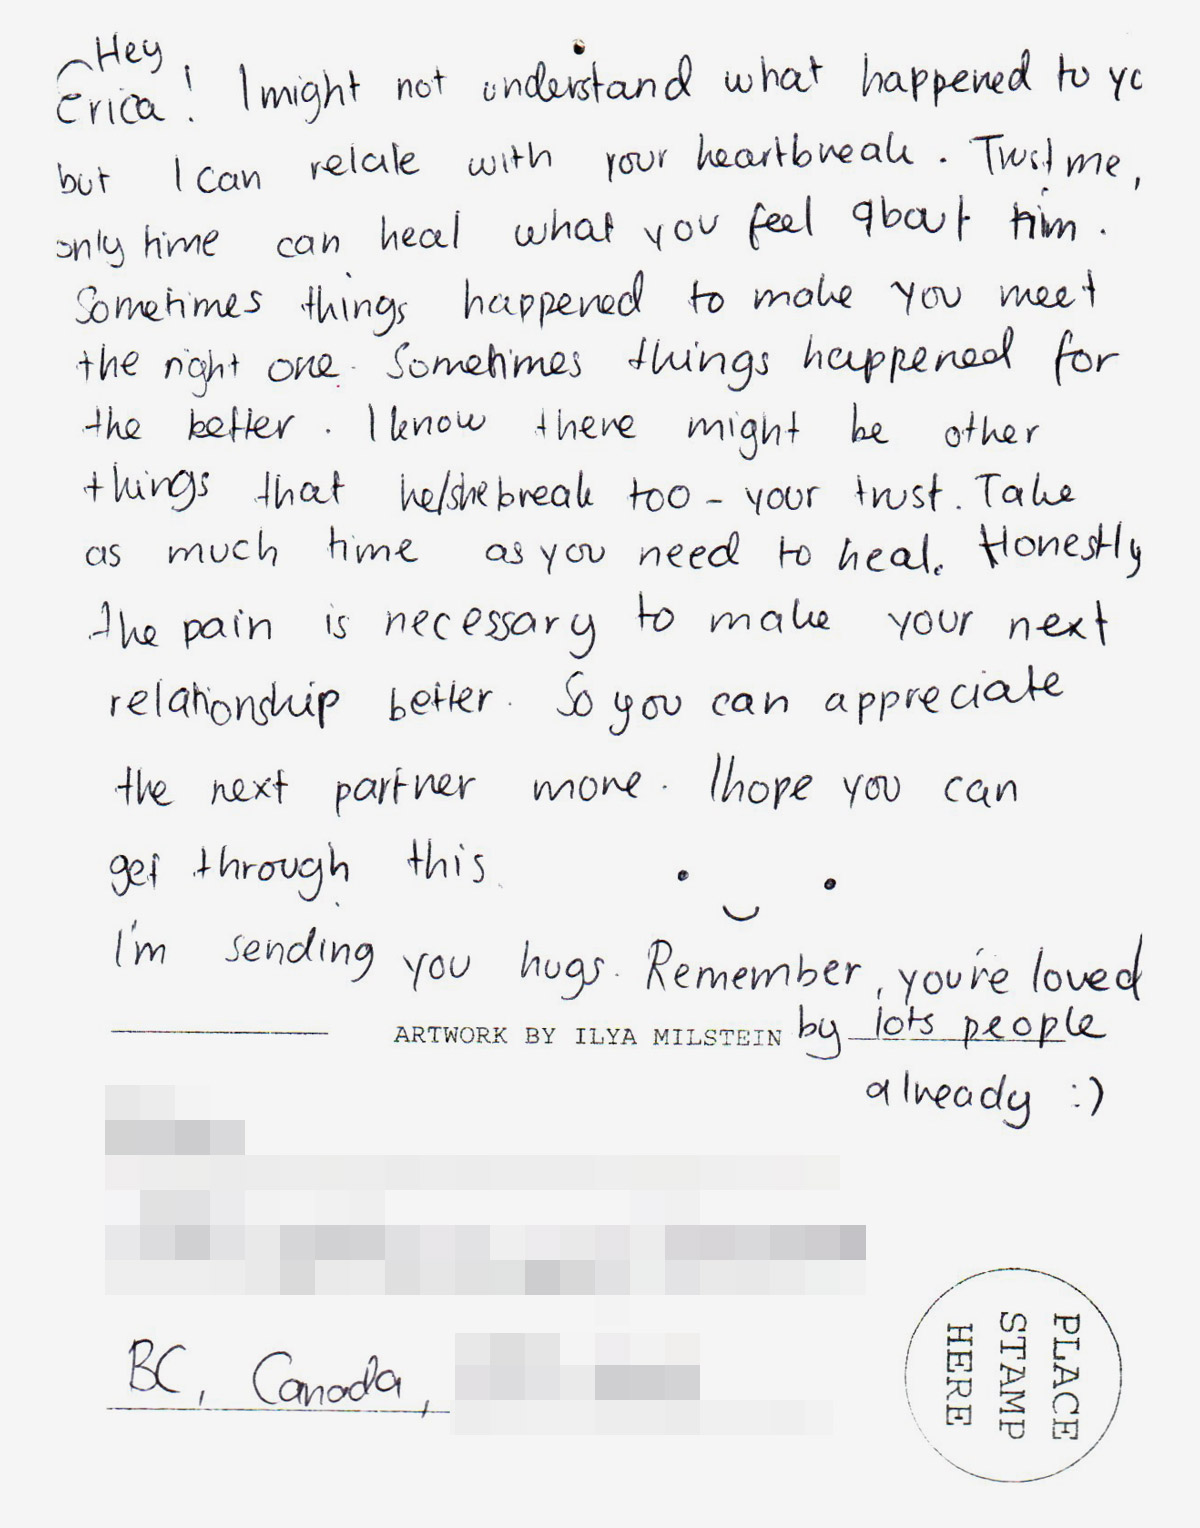 Hey
Erica! I might not understand what happened to yo
but I can relate with your heartbreak. Trust me,
only time can heal what you feel about him.
Sometimes things happened to make you meet
the right one. Sometimes things happened for
the better. I know there might be other
things that he/she break too - your trust. Take
as much time as you need to heal. Honestly
the pain is necessary to make your next
relationship better. So you can appreciate
the next partner more. I hope you can
get through this.
I'm sending you hugs. Remember, you're loved
by lots people
already :)
ARTWORK BY ILYA MILSTEIN
BC, Canada,
PLACE
STAMP
HERE